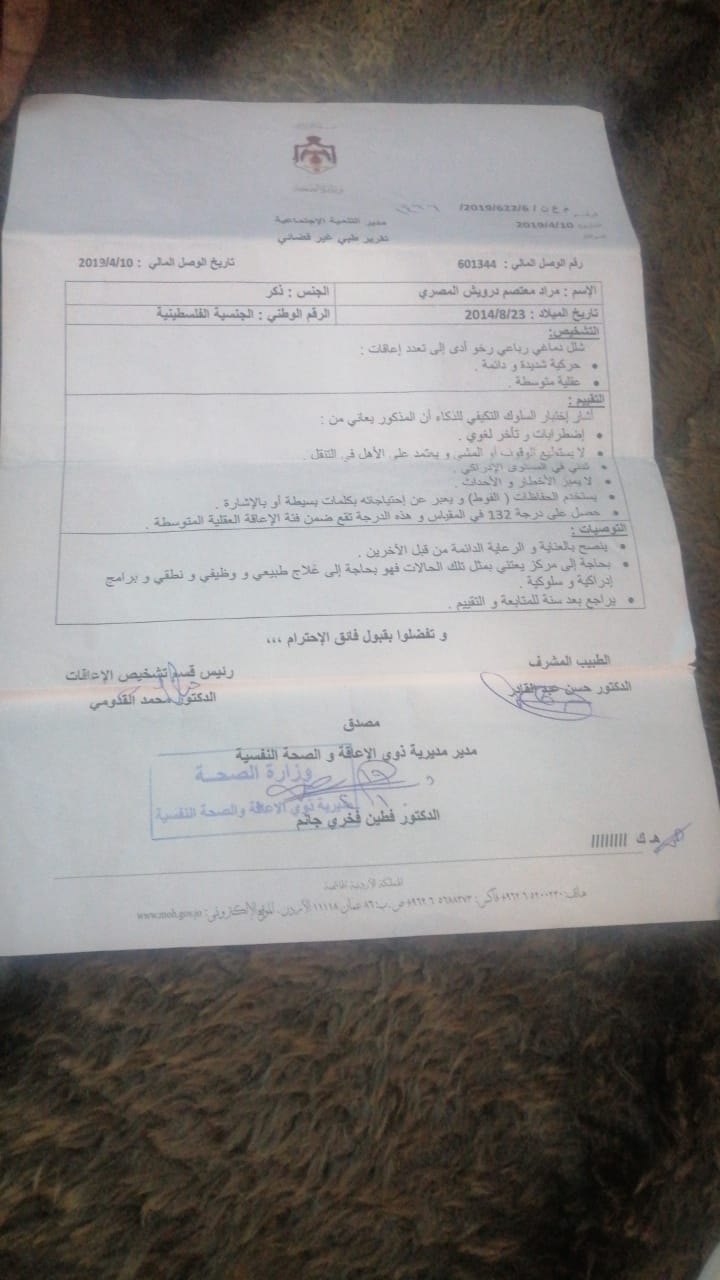 وزارة الصحة
م ع ن / 2019/622/6/
2019/4/10
مدير التنمية الإجتماعية
تقرير طبي غير قضائي
رقم الوصل المالي : 601344
تاريخ الوصل المالي : 2019/4/10
الإسم : مراد معتصم درويش المصري
الجنس : ذكر
تاريخ الميلاد : 2014/8/23
الرقم الوطني : الجنسية الفلسطينية
التشخيص:
شلل دماغي رباعي رخو أدى إلى تعدد إعاقات :
• حركية شديدة و دائمة .
• عقلية متوسطة .
التقييم :
أشار إختبار السلوك التكيفي للذكاء أن المذكور يعاني من :
• إضطرابات و تأخر لغوي .
• لا يستطيع الوقوف أو المشي و يعتمد على الأهل في التنقل .
• تدني في المستوى الإدراكي .
• لا يميز الأخطار و الأحداث .
• يستخدم الحفاظات ( الفوط) و يعبر عن إحتياجاته بكلمات بسيطة أو بالإشارة .
• حصل على درجة 132 في المقياس و هذه الدرجة تقع ضمن فئة الإعاقة العقلية المتوسطة .
التوصيات :
• ينصح بالعناية و الرعاية الدائمة من قبل الآخرين .
• بحاجة إلى مركز يعتني بمثل تلك الحالات فهو بحاجة إلى علاج طبيعي و وظيفي و نطقي و برامج
إدراكية و سلوكية .
• يراجع بعد سنة للمتابعة و التقييم .
و تفضلوا بقبول فائق الإحترام ،،،
الطبيب المشرف
الدكتور حسن عبد القادر
رئيس قسم تشخيص الإعاقات
الدكتور محمد القدومي
مصدق
مدير مديرية ذوي الإعاقة و الصحة النفسية
وزارة الصحة
مديرية ذوي الاعاقة والصحة النفسية
الدكتور فطين فخري جانم
هـ ك ////////
المملكة الأردنية الهاشمية
هاتف: ٥٢٠٠٢٣٠ ٩٦٢٦+ فاكس: ٥٦٨٨٣٧٣ ٩٦٢٦+ ص.ب: ٨٦ عمان ١١١١٨ الأردن. الموقع الإلكتروني: www.moh.gov.jo